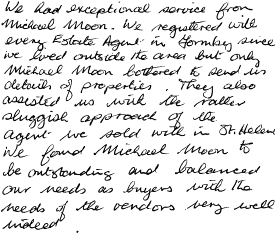 We had exceptional service from
Michael Moon. We registered with
every Estate Agent in Formby since
we lived outside the area but only
Michael Moon bothered to send us
details of properties. They also
assisted us with the rather
sluggish approach of the
agent we sold with in St. Helens
We found Michael Moon to
be outstanding and balanced
our needs as buyers with the
needs of the vendors very well
indeed.